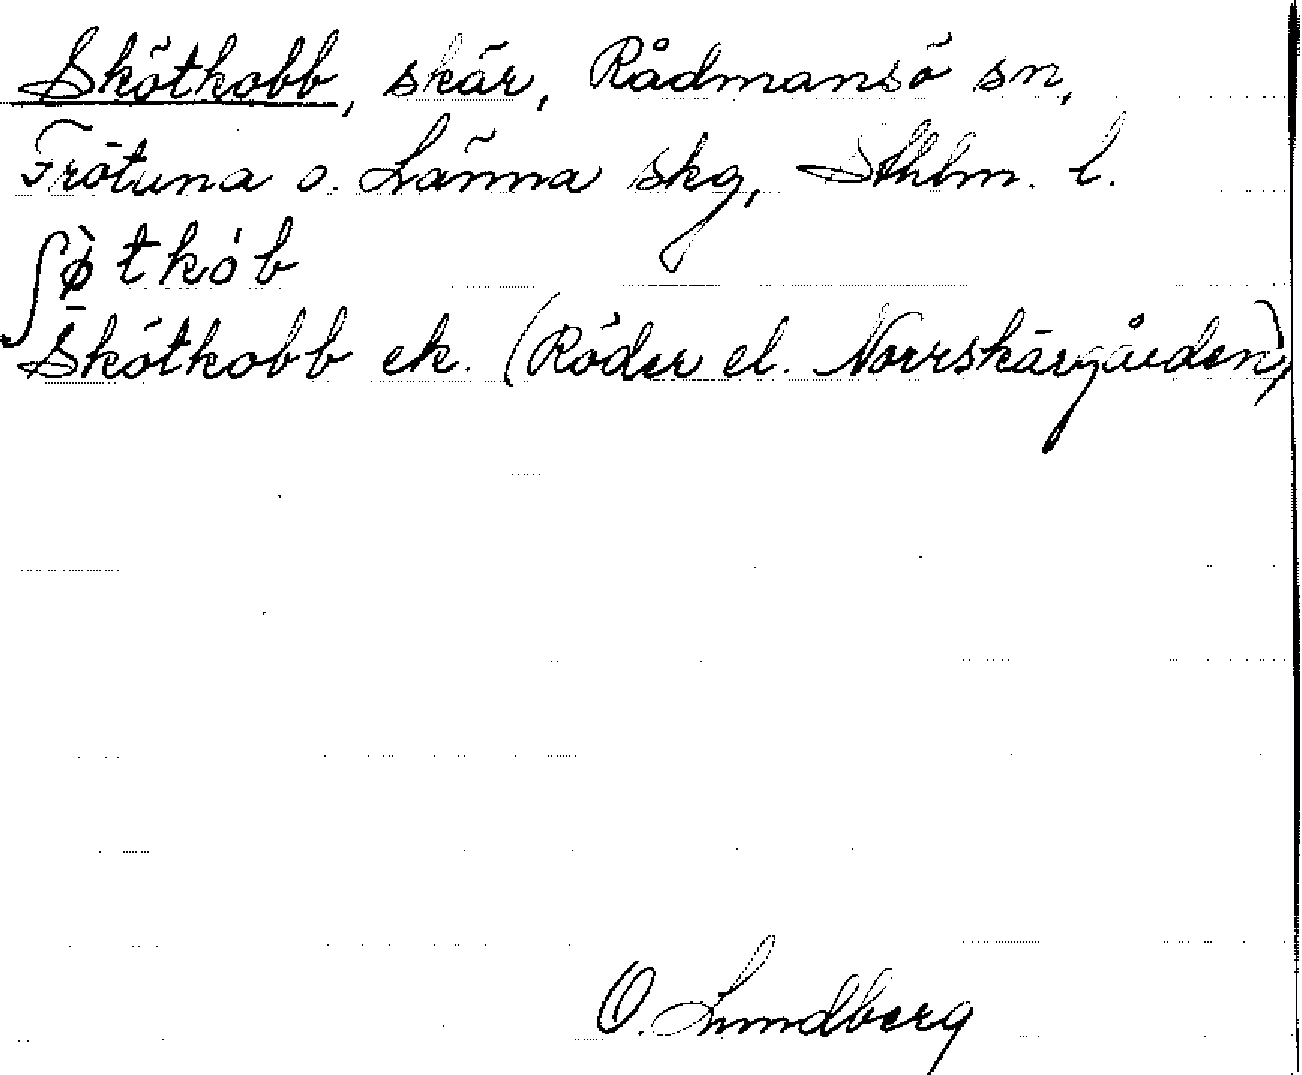 Skötkobb, skär, Rådmansö sn,
Frötuna o. Länna skg, Sthlm. l.
ʃø̀tkób
Skötkobb ek. (Röder el. Norrskärgården)
O. Lundberg